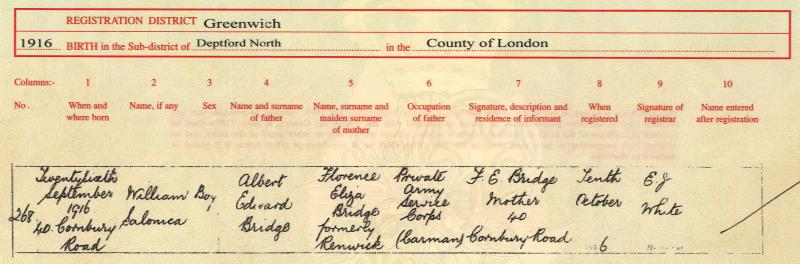 REGISTRATION DISTRICT Greenwich
1916 BIRTH in the Sub-district of Deptford North in the County of London
Columns:- 1 2 3 4 5 6 7 8 9 10
No. When and where born Name, if any Sex Name and surname of father Name, surname and maiden surname of mother Occupation of father Signature, description and residence of informant When registered Signature of registrar Name entered after registration
268
Twentysixth
September
1916
40 Cornbury
Road
William
Salonica
Boy
Albert
Edward
Bridge
Florence
Eliza
Bridge
formerly
Renwick
Private
Army
Service
Corps
(Carman)
F. E. Bridge
Mother
40
Cornbury Road
Tenth
October
1916
E J
White